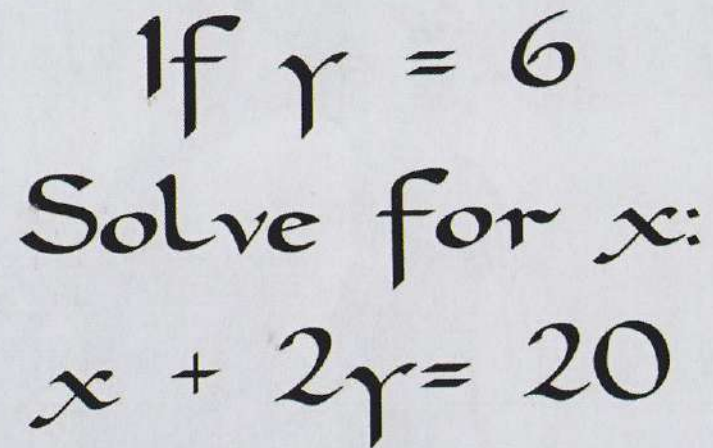 If y = 6
Solve for x:
x + 2y= 20